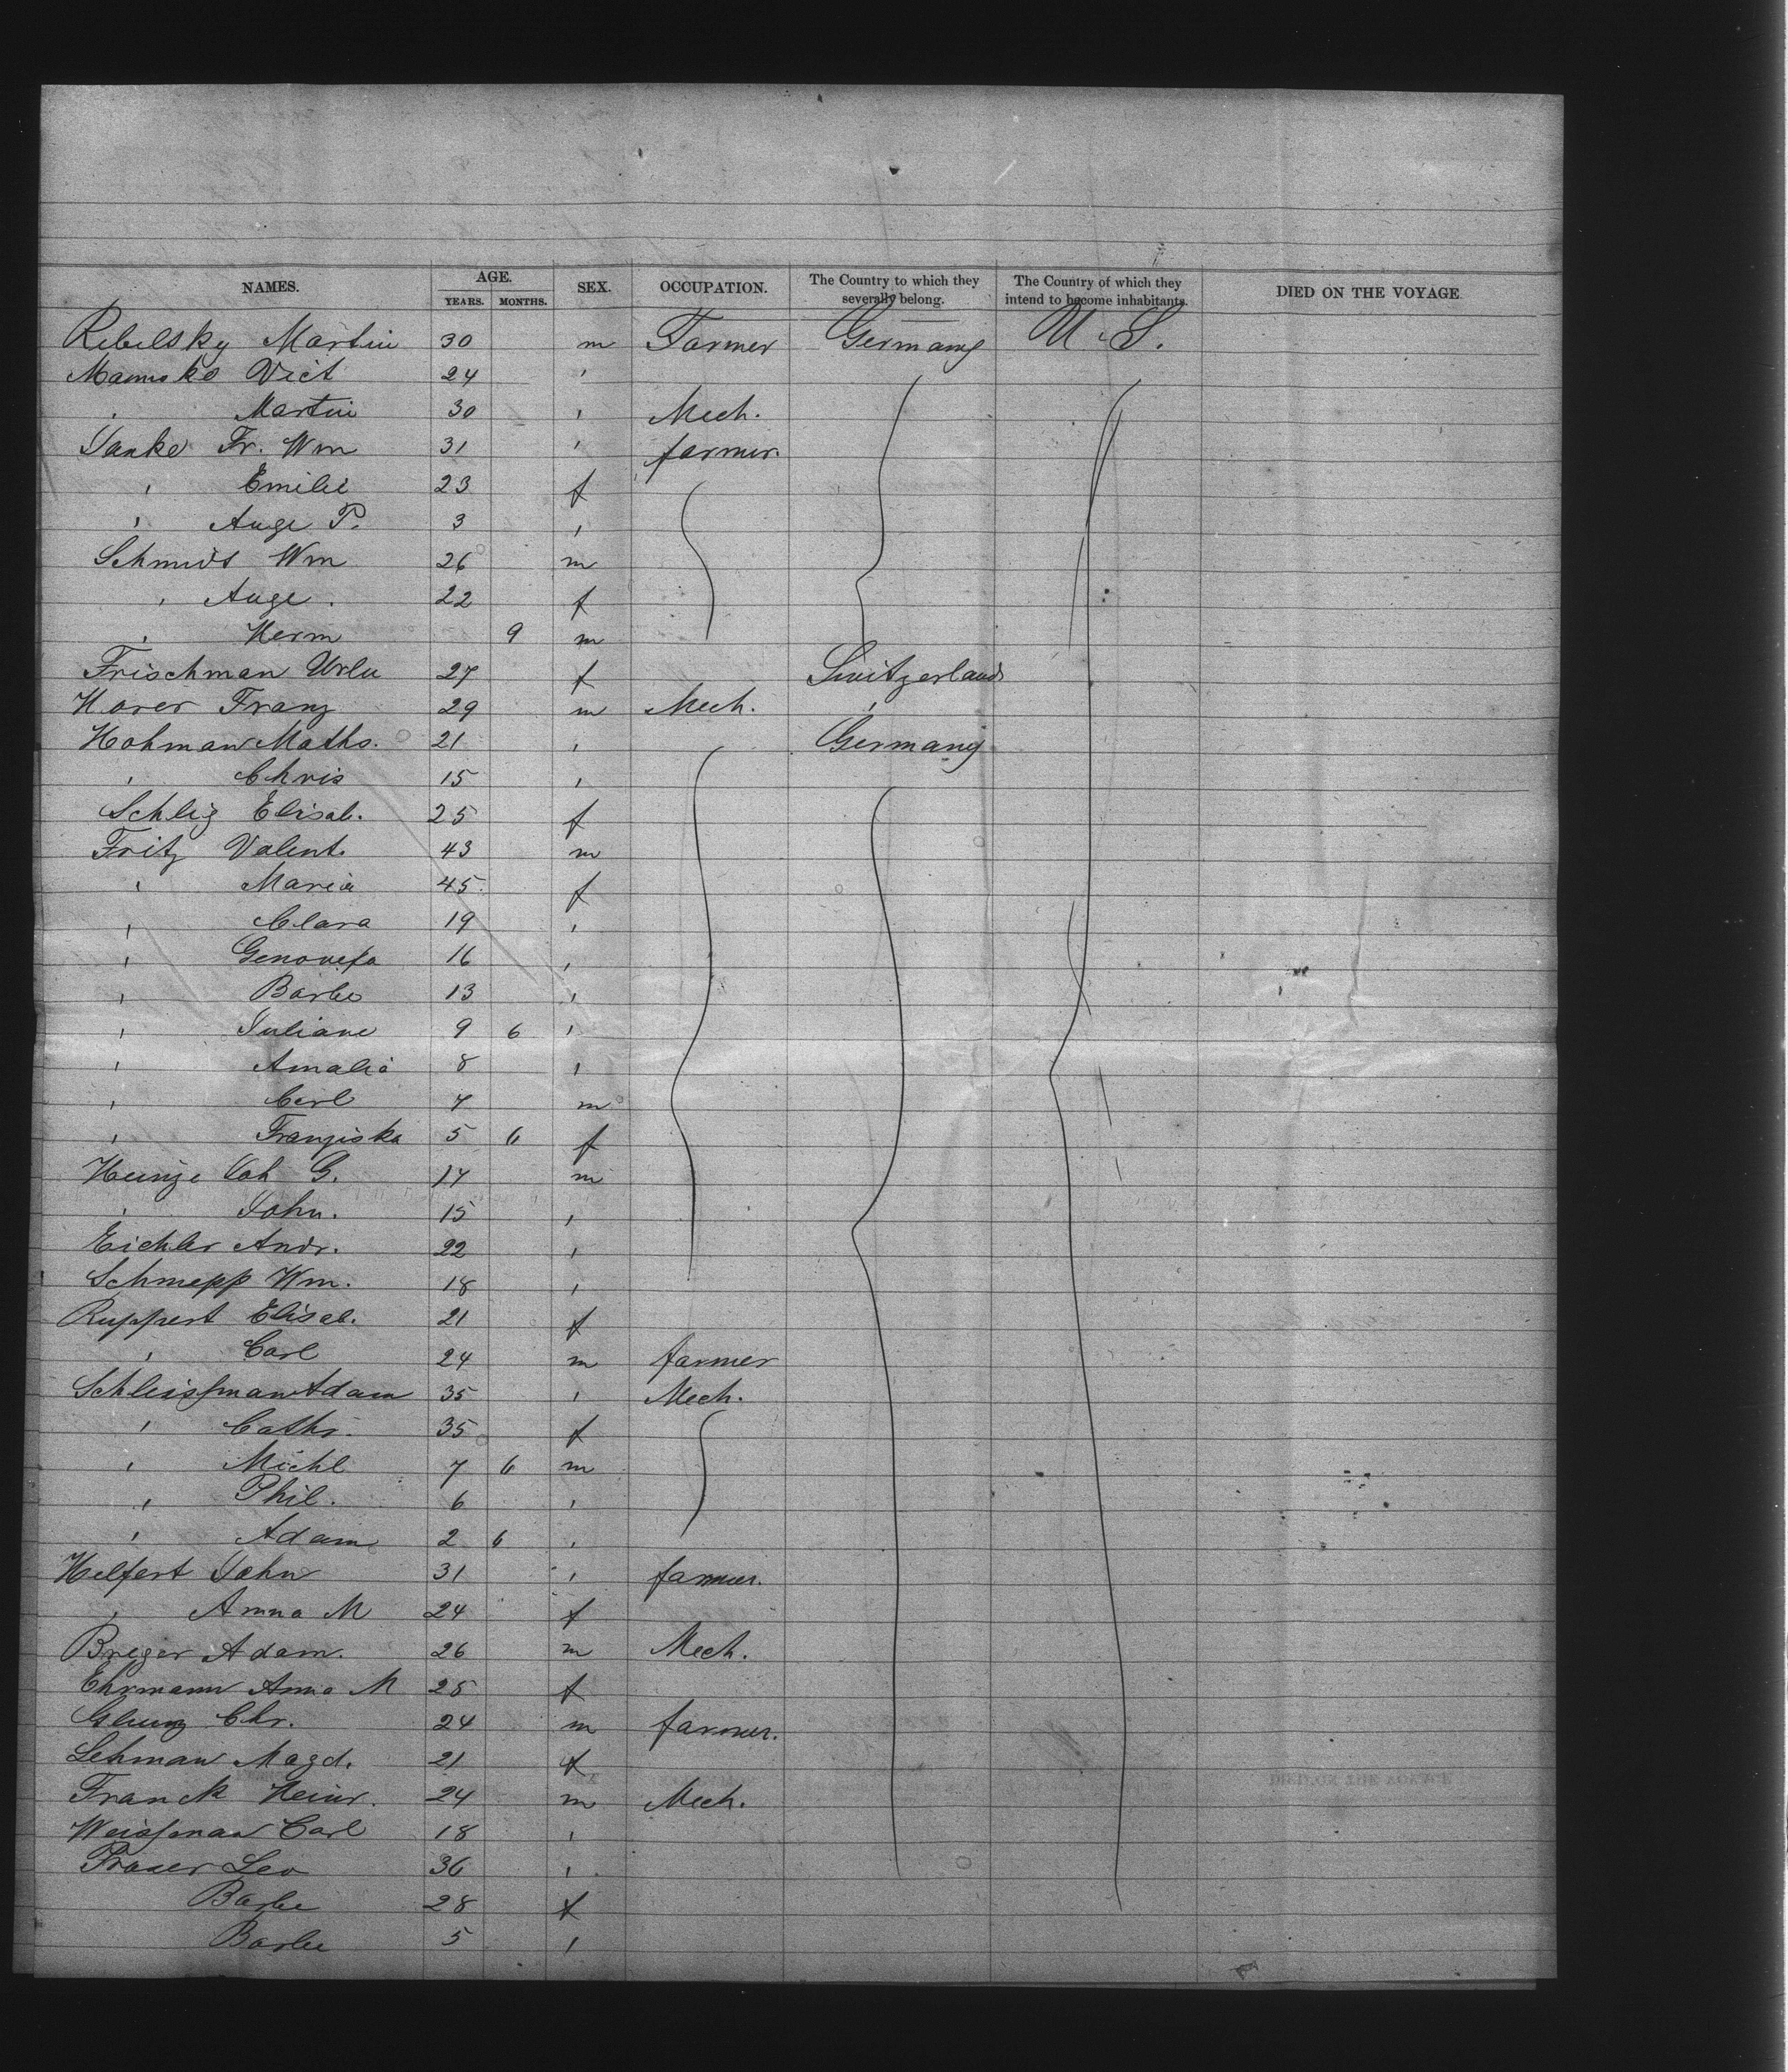 NAMES. AGE. SEX. OCCUPATION. The Country to which they severally belong. The Country of which they intend to become inhabitants. DIED ON THE VOYAGE
YEARS. MONTHS.
Rebelsky Martin 30 m Farmer Germany U.S.
Vict 24 '
' Martin 30 ' Mech.
Janke Fr. Wm 31 ' farmer.
' Emilie 23 f
' Auge P. 3 '
Schmidt Wm 26 m
' Auge. 22 f
' Herm 9 m
Frischman 27 f Switzerland
Horer Franz 29 m Mech. '
Hohman Maths. 21 ' Germany
' Chris 15 '
Schlig Elisab. 25 f
Fritz Valent. 43 m
' Maria 45 f
' Clara 19 '
' Genovefa 16 '
' Barbe 13 '
' Juliane 9 6 '
' Amalia 8 '
' Carl 7 m
' Franziska 5 6 f
Heinze Joh G. 17 m
' John. 15 '
Eichler Andr. 22 '
Schnepp Wm. 18 '
Ruppert Elisab. 21 f
' Carl 24 m farmer
Schleissman Adam 35 ' Mech.
' Cathr. 35 f
' Michl 7 6 m
' Phil. 6 '
' Adam 2 6 '
Helfert John 31 ' farmer.
' Anna M 24 f
Breger Adam. 26 m Mech.
Ehrmann Anna M 25 f
Glunz Chr. 24 m farmer.
Lehman Magd. 21 f
Franck Heinr. 24 m Mech.
Weissman Carl 18 '
Leo 36 '
Barbe 28 f
Barbe 5 '